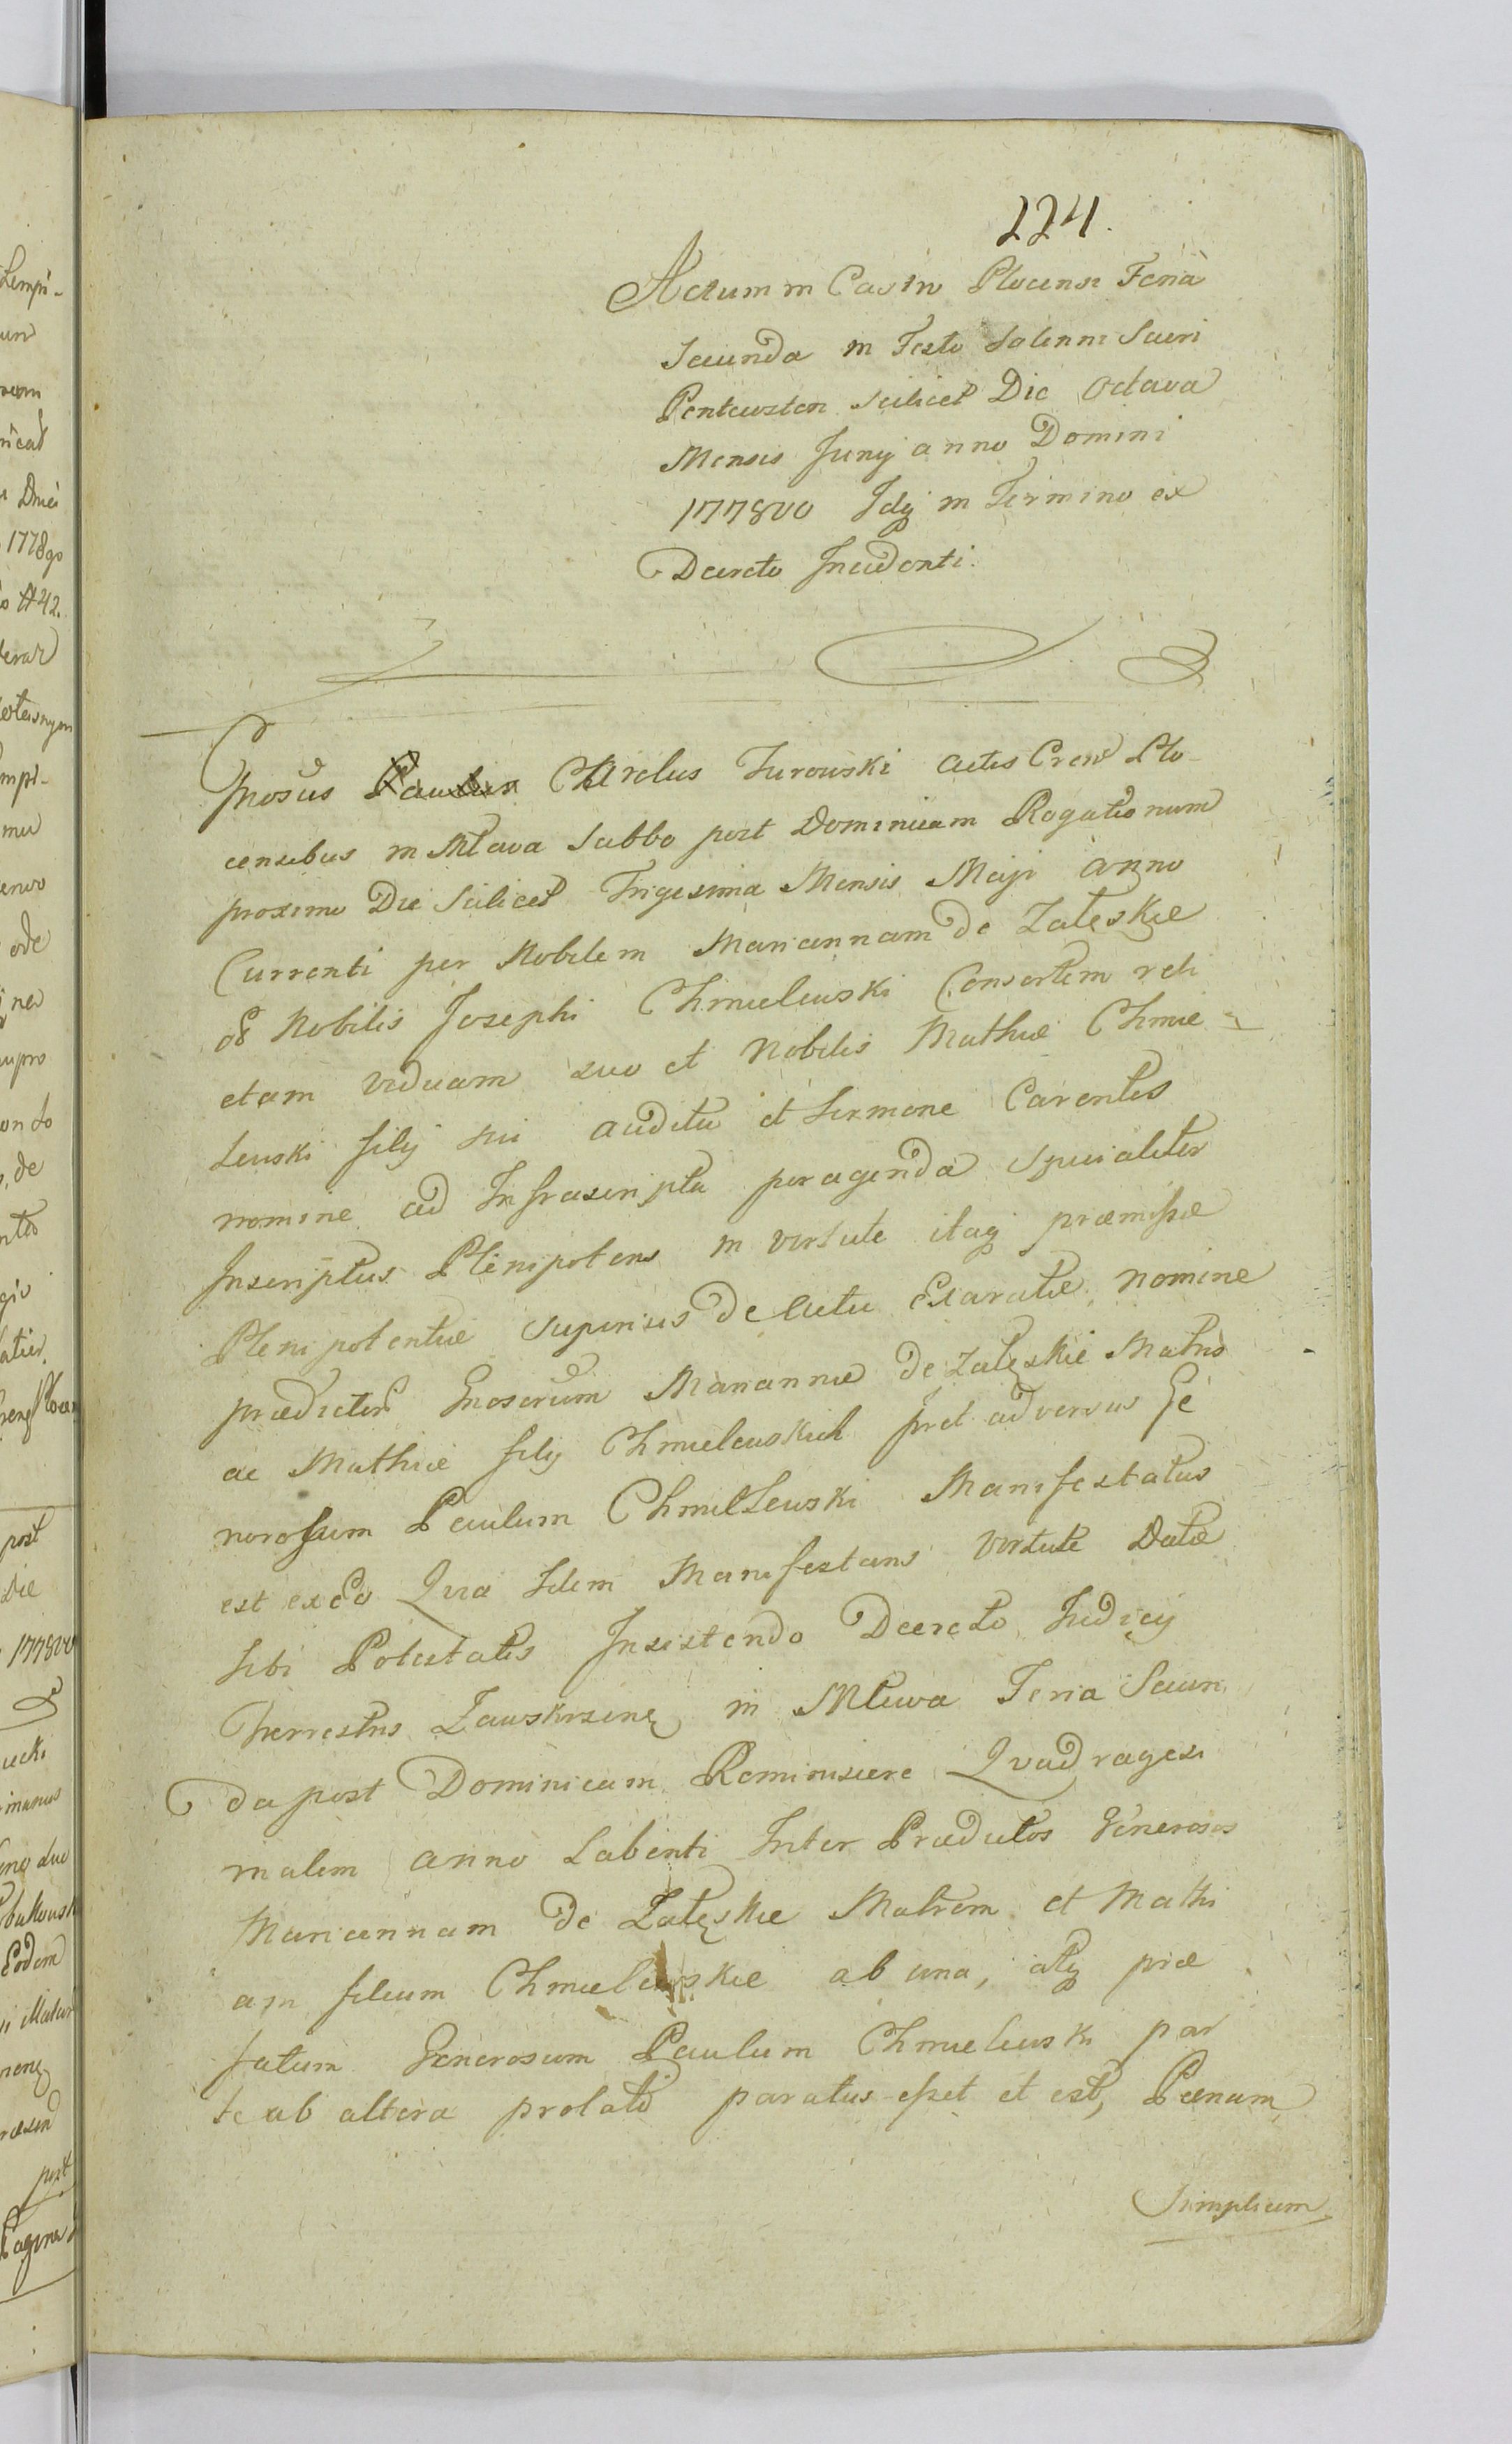 224.
Actum in Castro Plocensi Feria
Secunda in Festo Solenni Sacri
Pentecosten scilicet Die Octava
Mensis Junij anno Domini
177800 Idq in Termino ex
Decreto Incidenti.
Gnosus Paulus Carolus Turowski actis Cren Plo
censibus in Mława Sabbo post Dominicam Rogationum
proximo Die scilicet Trigesima Mensis Maji anno
Currenti per Nobilem Mariannam de Załęskie
oG Nobilis Josephi Chmielewski Consortem reli
ctam viduam suo et Nobilis Mathiæ Chmie
lewski filij sui auditu et Sermone Carentis
nomine ad Infrascripta peragenda specialiter
Inscriptus Plenipotens in virtute itaq præmissæ
Plenipotentiæ superius de Actu Exaratæ, nomine
prædictor Gnosorum Mariannæ de Załęskie Matris
ac Mathiæ filij Chmielewskich pret adversus Ge
nerosum Paulum Chmielewski Manifestatus
est ex eo Quia Idem Manifestans virtute Datæ
sibi Potestatis Insistendo Decreto Iudicij
Terrestris Zawskrzinę in Mława Feria Secun
da post Dominicam Reminiscere Quadragesi
malem anno Labenti Inter Prædictos Generosos
Mariannam de Załęskie Matrem et Mathi
am filium Chmielewskie ab una, atq præ
fatum Generosum Paulum Chmielewski par
te ab altera prolato paratus esset et est, Pænam
Simplicem
Lempi-
1778go
#42.
mpi-
ode
de
post
die
177800
ucki
Eodem
post
Pagina